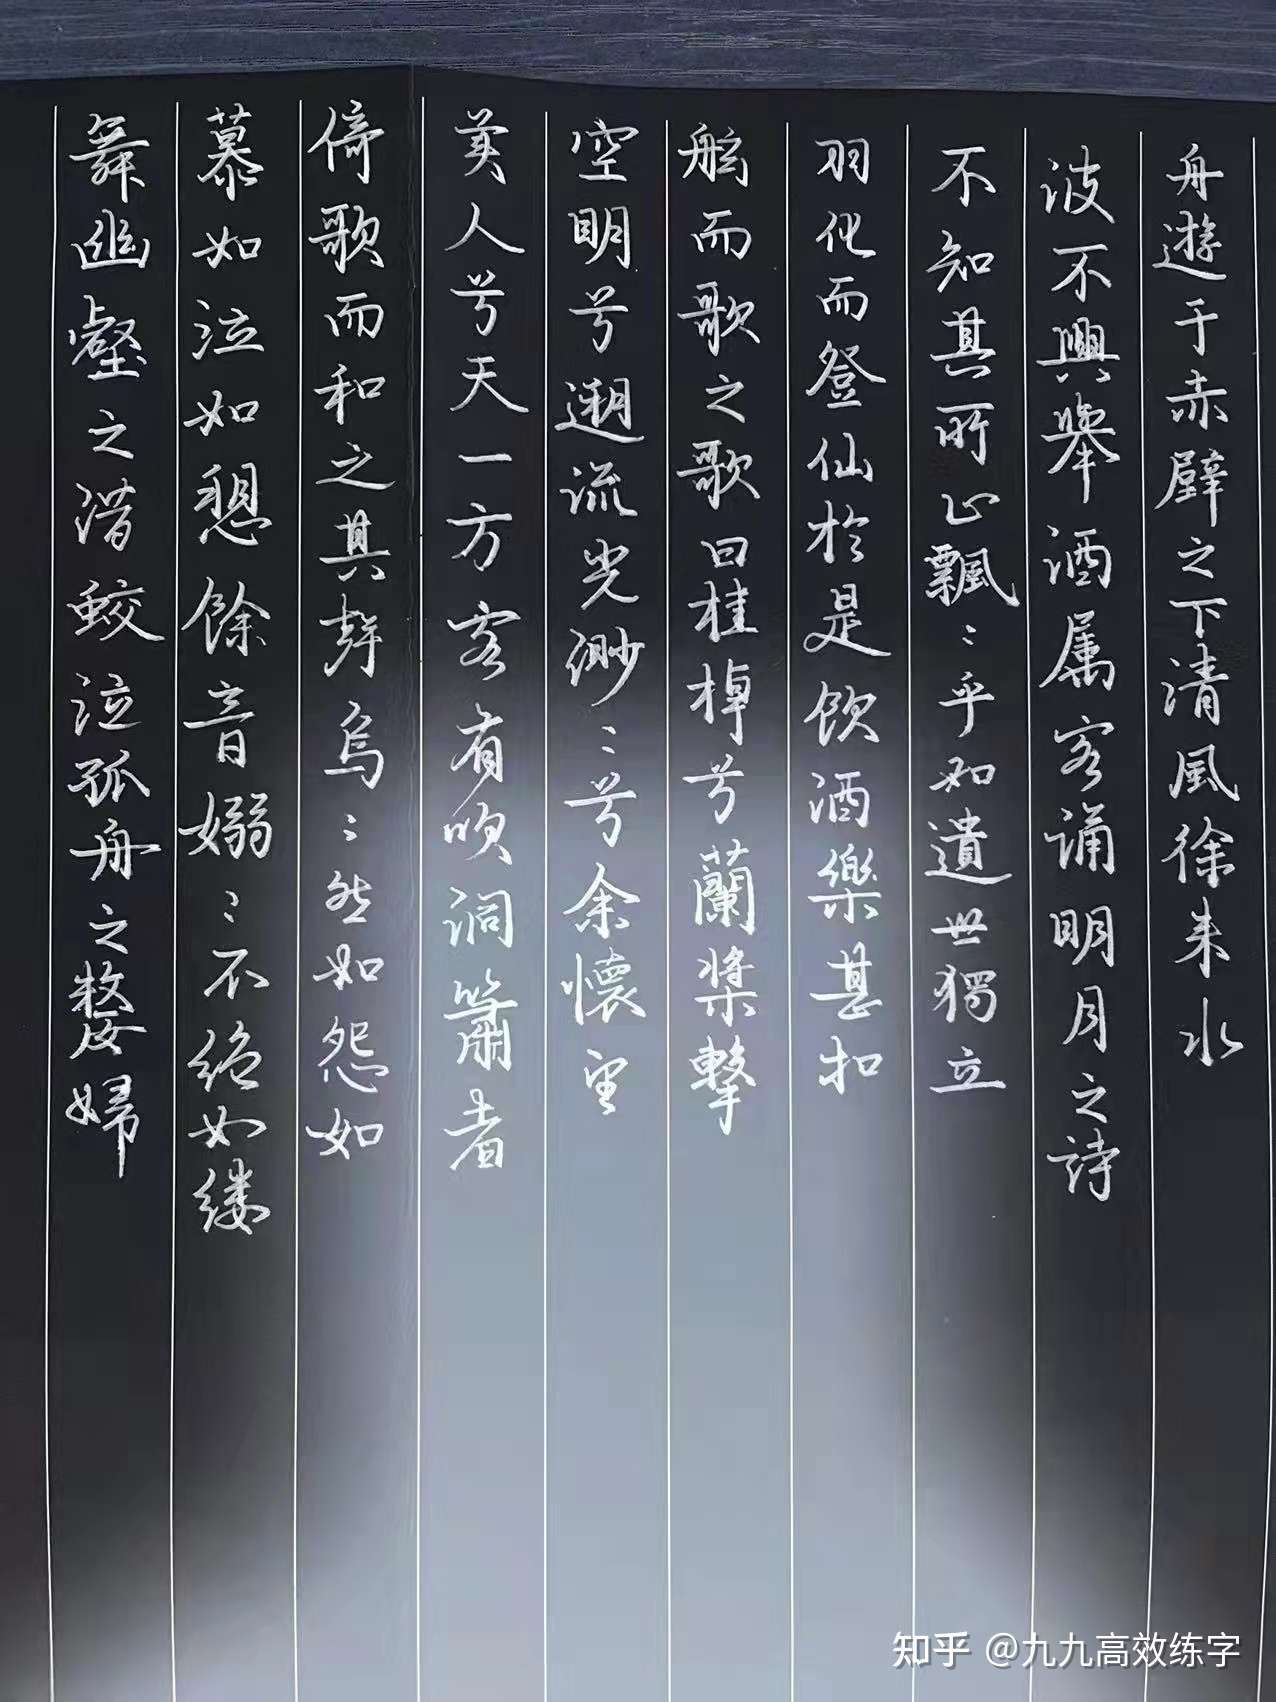 舟遊于赤壁之下清風徐来水
波不興舉酒属客誦明月之詩
不知其所止飄〻乎如遺世獨立
羽化而登仙於是飲酒樂甚扣
舷而歌之歌曰桂棹兮蘭槳擊
空明兮遡流光渺〻兮余懷望
美人兮天一方客有吹洞簫者
倚歌而和之其聲烏〻然如怨如
慕如泣如愬餘音嫋〻不絕如缕
舞幽壑之潛蛟泣孤舟之嫠婦
知乎 @九九高效练字